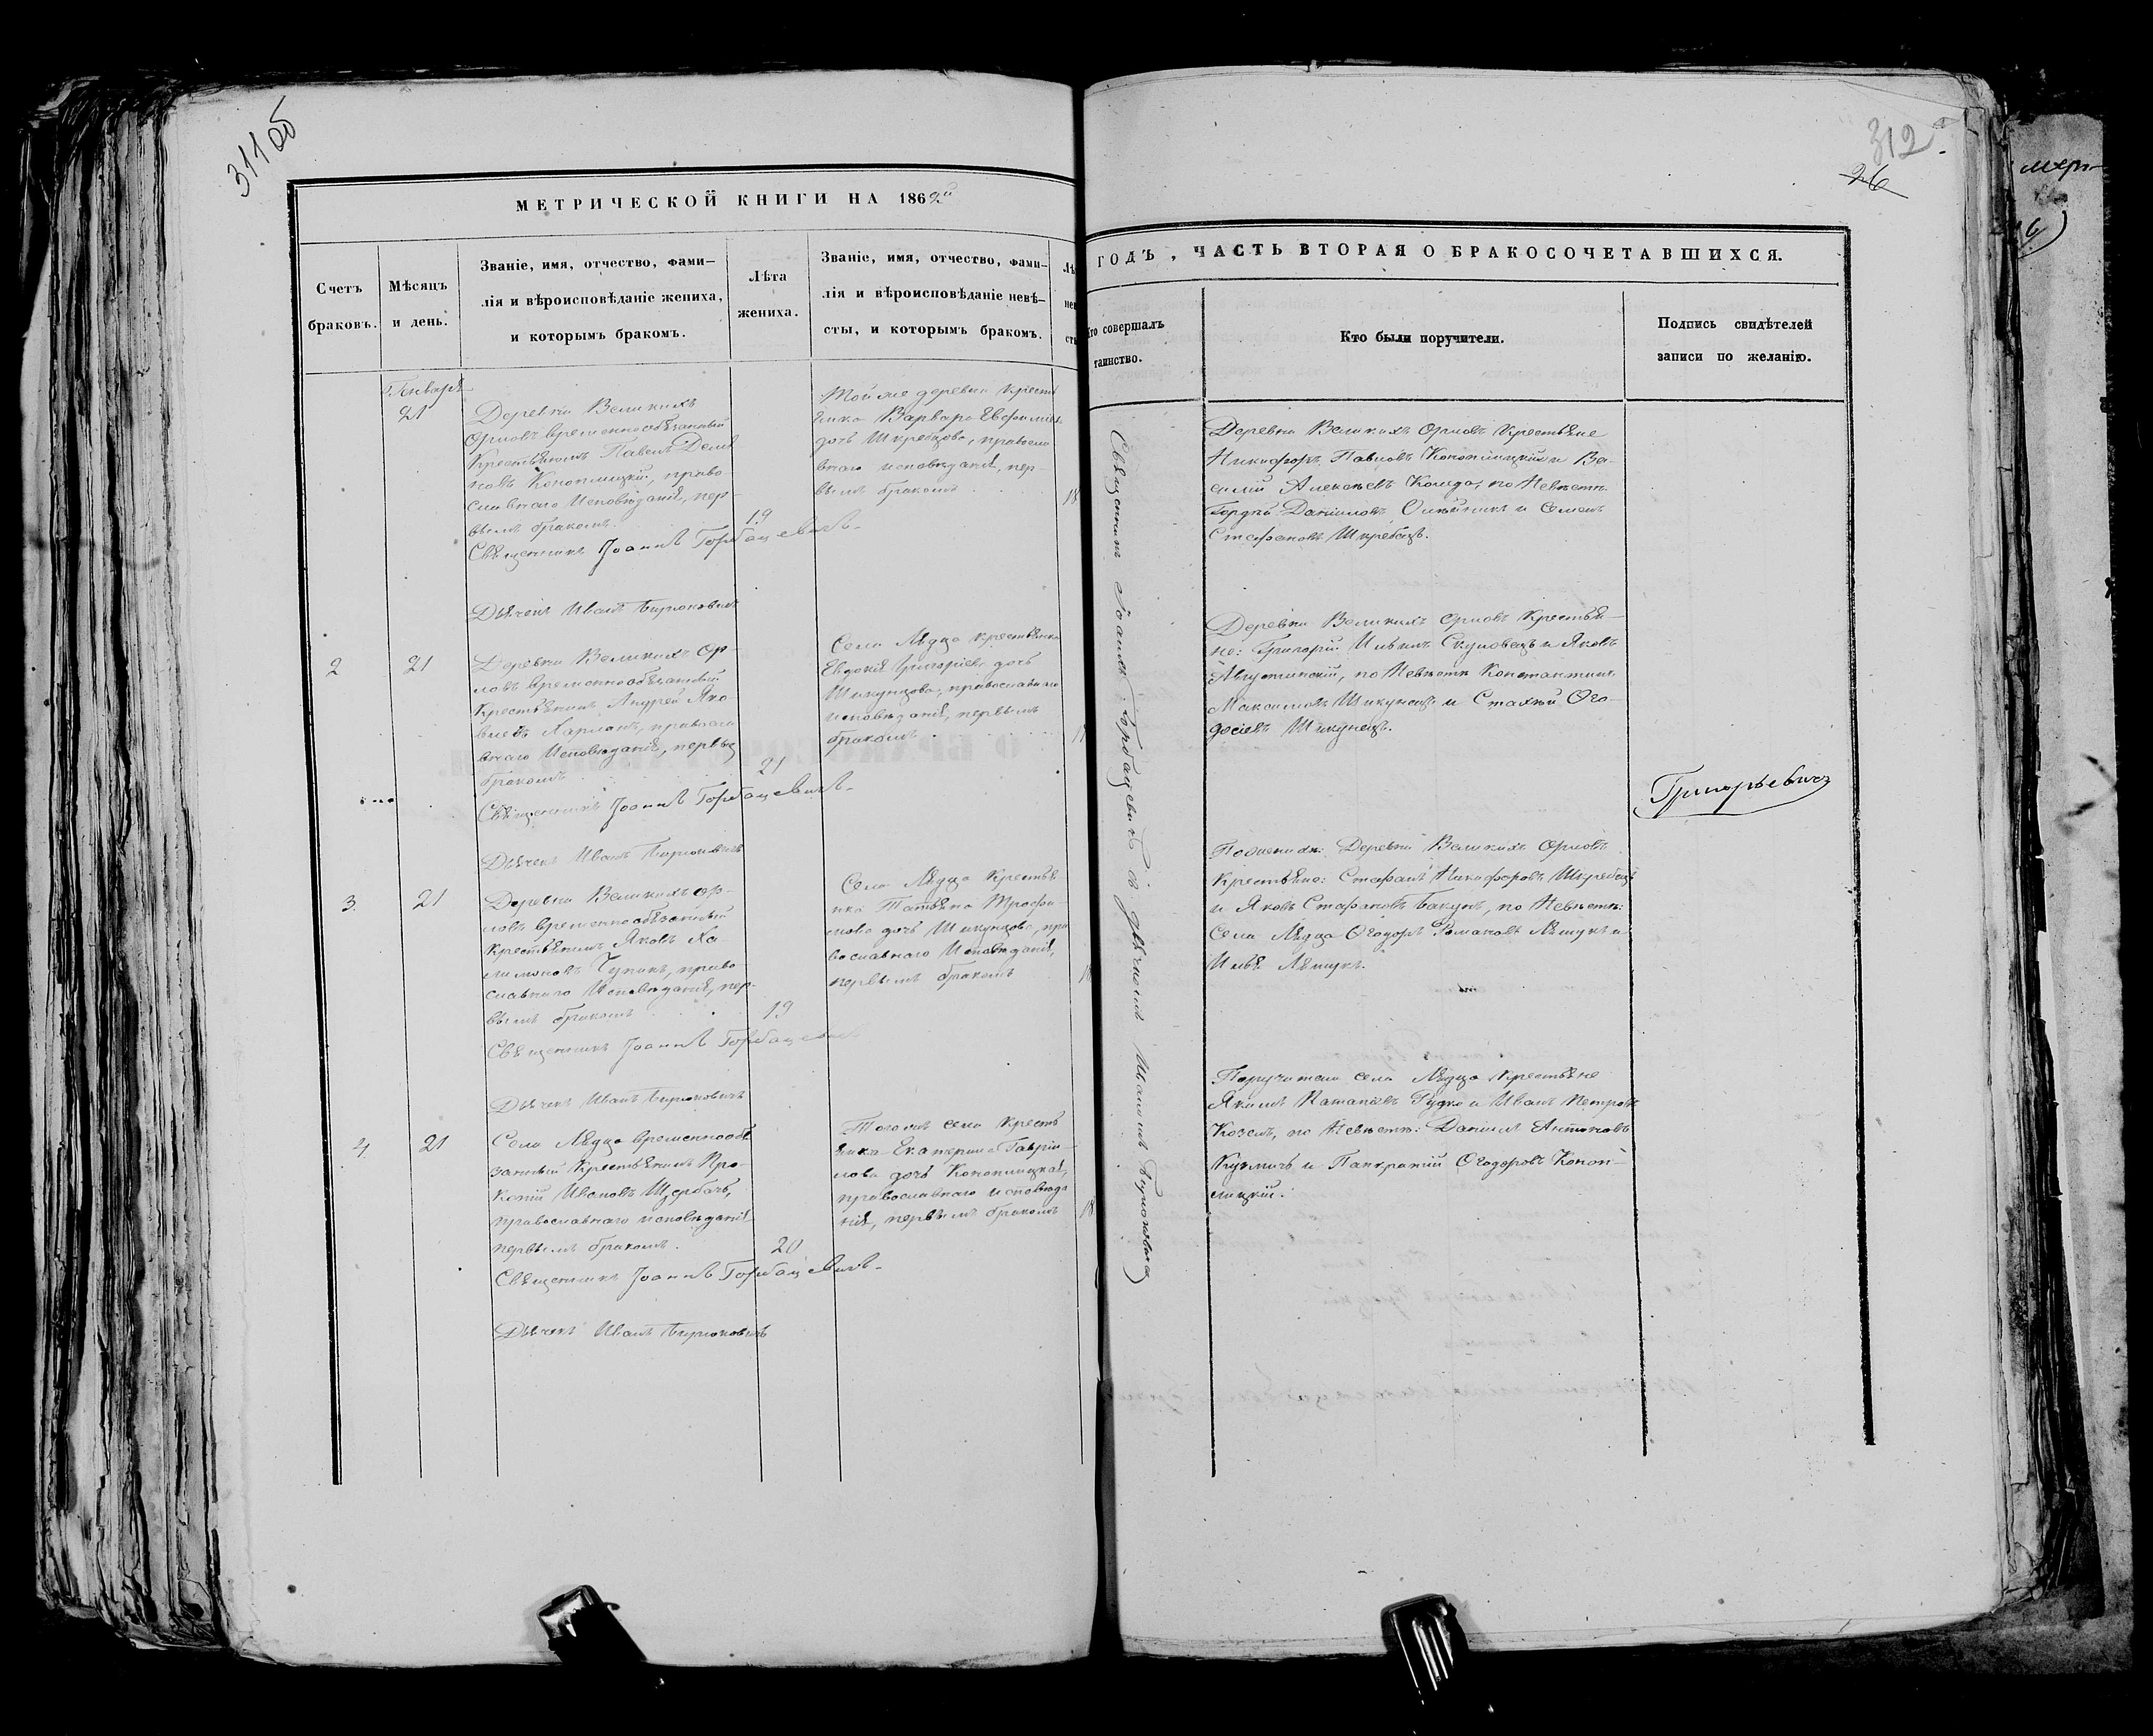 311об
МЕТРИЧЕСКОЙ КНИГИ НА 1862й
Счетъ
браковъ.
Мѣсяцъ
и день.
Званіе, имя, отчество, фами-
лія и вѣроисповѣданіе жениха,
и которымъ бракомъ.
Лѣта
жениха.
Званіе, имя, отчество, фами-
лія и вѣроисповѣданіе невѣ-
сты, и которымъ бракомъ.
Января
21
Деревни Великихъ
Орловъ временнообязанный
Крестьянинъ Павелъ Демя
новъ Конопляцкій, право-
славнаго Исповѣданія, пер-
вымъ бракомъ.
19
Священникъ Іоаннъ Горбацевичъ
Дьячекъ Иванъ Бирюковичъ
Той же деревни крестья
янка Варвара Евфиміева
дочь Шкребцова, правосла
внаго исповѣданія, пер-
вымъ бракомъ
18
2
21
Деревни Великихъ Ор-
ловъ временнообязанный
Крестьянинъ Андрей Яко
влевъ Харланъ, правосла
внаго Исповѣданія, первымъ
бракомъ
21
Священникъ Іоаннъ Горбацевичъ
Дьячекъ Иванъ Бирюковичъ
Села Лядца крестьянка
Евдокія Григоріева дочь
Шикунцова, православнаго
исповѣданія, первымъ
бракомъ
3
21
Деревни Великихъ Ор-
ловъ временнообязанный
Крестьянинъ Яковъ
Чупикъ, право-
славнаго Исповѣданія, пер-
вымъ бракомъ
19
Священникъ Іоаннъ Горбацевичъ
Дьячекъ Иванъ Бирюковичъ
Села Лядца Крестья-
нка Татьяна Трофи-
мова дочь Шикунцова, пра
вославнаго Исповѣданія,
первымъ бракомъ
4
21
Села Лядца временнообя
занный Крестьянинъ Про-
копій Ивановъ Щербачъ,
православнаго исповѣданія
первымъ бракомъ.
20
Священникъ Іоаннъ Горбацевичъ
Дьячекъ Иванъ Бирюковичъ
Тогожъ села Крестья
янка Екатерина Гаврiи-
лова дочь Конопляцкая,
православнаго исповѣда
нія, первымъ бракомъ
18
312
26
ГОДЪ, ЧАСТЬ ВТОРАЯ О БРАКОСОЧЕТАВШИХСЯ.
Кто совершалъ
таинство.
Кто были поручители.
Подпись свидѣтелей
записи по желанію.
Священникъ Іоаннъ Горбацевичъ съ дьячкомъ Иваномъ Бирюковичемъ
Деревни Великихъ Орловъ Крестьяне
Никифоръ Павловъ Конопляцкій и Ва-
силій Алексѣевъ Колода, по Невѣстѣ
Даніиловъ Олейникъ и Семенъ
Стефановъ Шкребецъ.
Деревни Великихъ Орловъ Крестья-
не: Григорій Ильинъ Скуловецъ и Яковъ
Августинскій, по Невѣстѣ Константинъ
Максимовъ Шикунецъ и Стахій Ѳео-
досіевъ Шикунецъ.
По женихѣ: Деревни Великихъ Орловъ
Крестьяне: Стефанъ Никифоровъ Шкребецъ
и Яковъ Стефановъ Бакунъ, по Невѣстѣ:
Села Лядца Ѳеодоръ Романовъ Лемука и
Илья Лемукъ.
Поручители села Лядца Крестьяне
Якимъ Потаповъ Гудко и Иванъ Петровъ
Козелъ, по Невѣстѣ: Даніилъ Антоновъ
Кузмичъ и Панкратій Ѳеодоровъ Коноп-
ляцкій.
Григорьевичъ